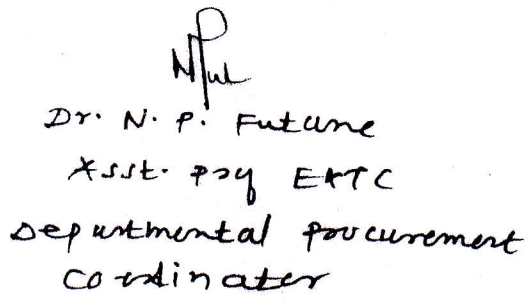 Dr. N. P. Futane
Asst. Prof E&TC
Departmental procurement
Co-ordinator